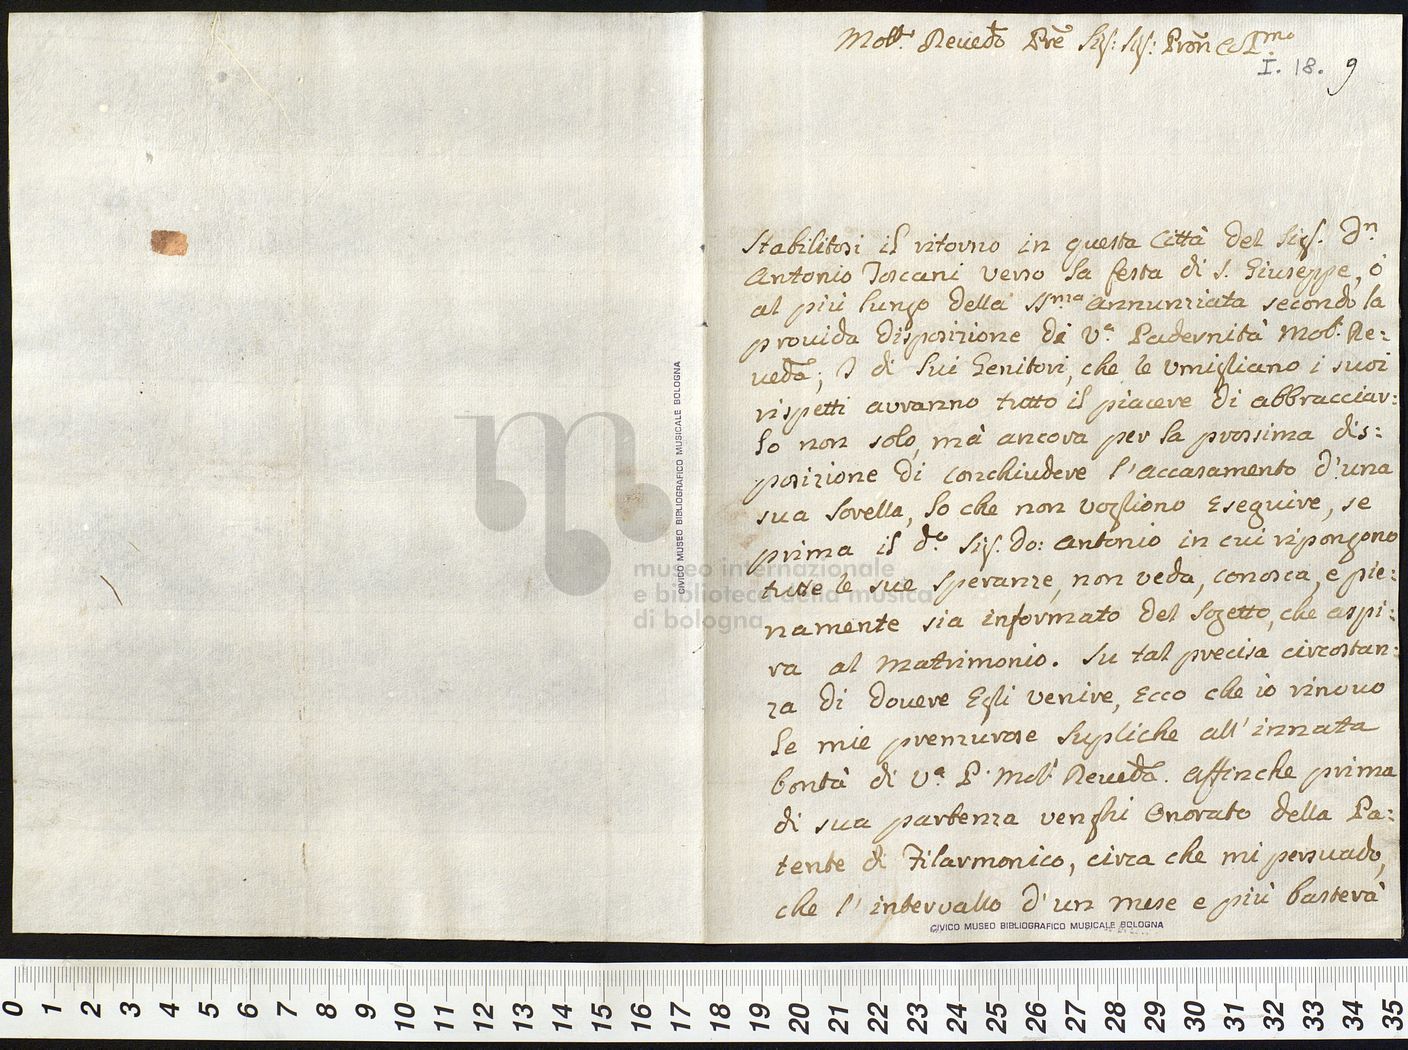 Molt. Reuedo Pre Sig: Sig: Pron Colmo
I. 18. 9
Stabilitosi il ritorno in questa Città del Sig. Dn
Antonio Toscani verso la festa di S. Giuseppe, ò
al più lungo della SSma Annunziata secondo la
prouida disposizione di Va Padernità Mol. Re=
ueda; I di lui Genitori, che le vmigliano i suoi
rispetti auranno tutto il piacere di abbracciar=
lo non solo, mà ancora per la prossima dis=
posizione di conchiudere l'accasamento d'una
sua Sorella, lo che non vogliono Eseguire, se
prima il do Sig. Do: Antonio in cui ripongono
tutte le sue speranze, non veda, conosca, e pie=
namente sia informato del Sogetto, che aspi=
ra al Matrimonio. Su tal precisa circostan=
za di douere Egli venire, Ecco che io rinouo
le mie premurose supliche all'innata
bontà di Va P. Mol. Reueda. affinche prima
di sua partenza venghi Onorato della Pa=
tente di Filarmonico, circa che mi persuado,
che l'interuallo d'un mese e più basterà
CIVICO MUSEO BIBLIOGRAFICO MUSICALE BOLOGNA
CIVICO MUSEO BIBLIOGRAFICO MUSICALE BOLOGNA
museo internazionale
e biblioteca della musica
di bologna
0 1 2 3 4 5 6 7 8 9 10 11 12 13 14 15 16 17 18 19 20 21 22 23 24 25 26 27 28 29 30 31 32 33 34 35